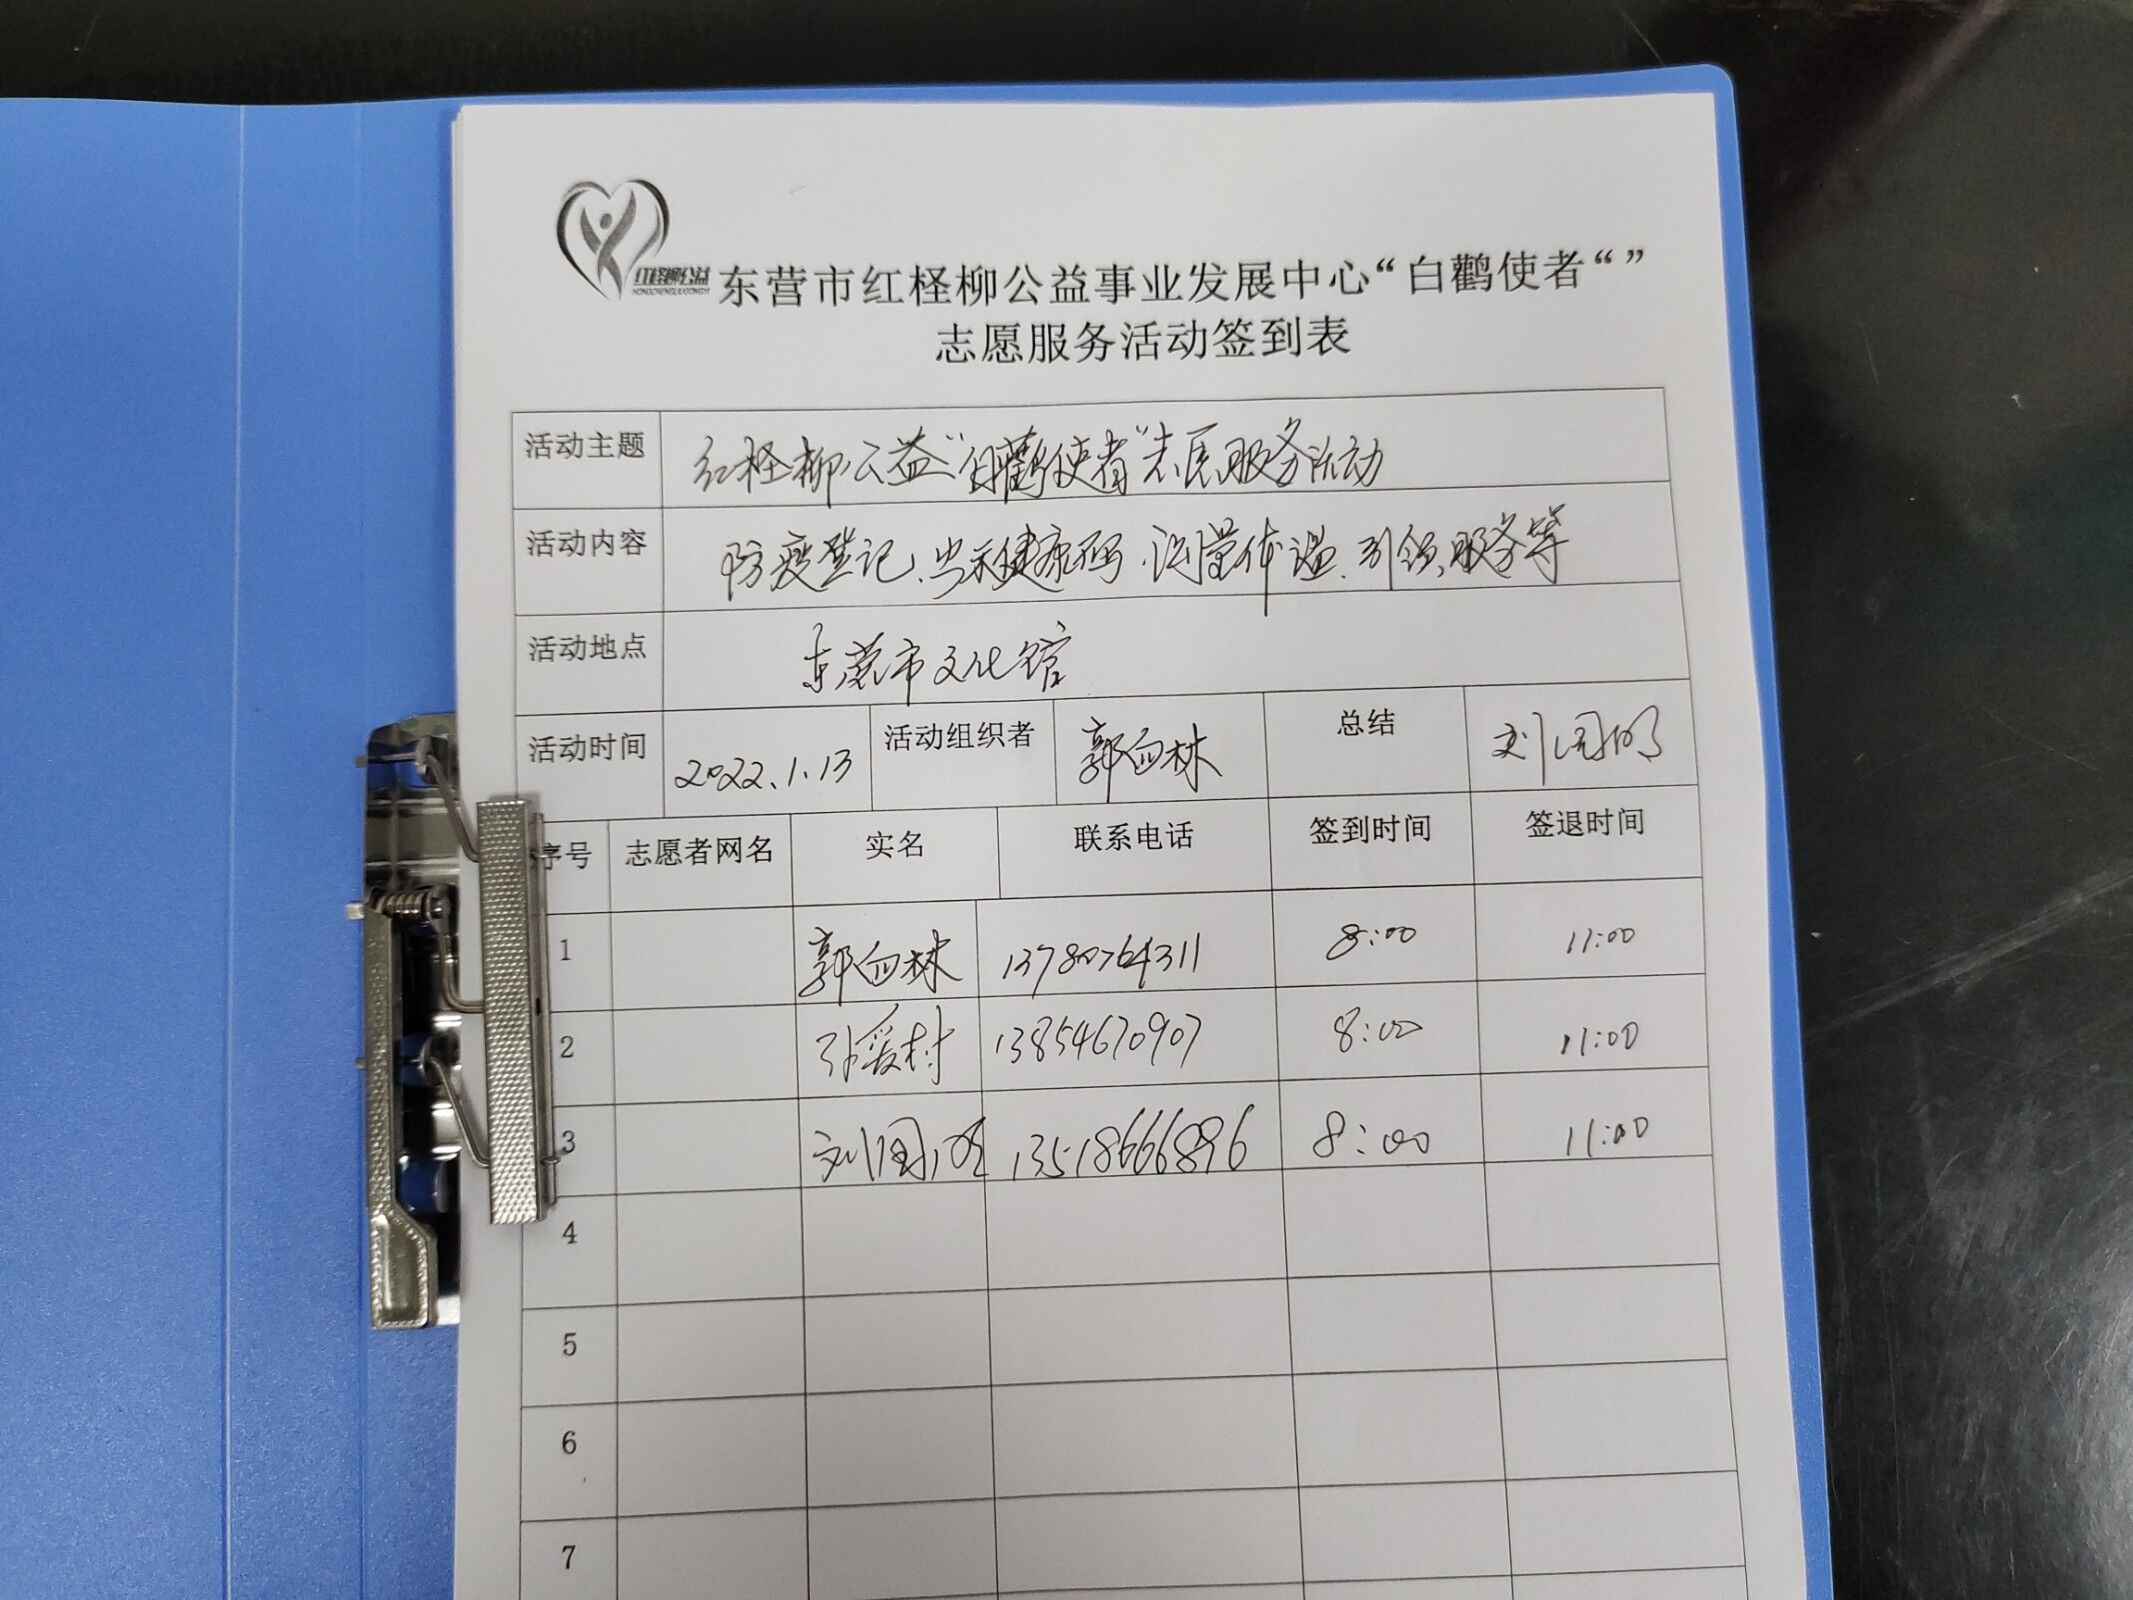 红柽柳公益
HONGCHENGLIUGONGYI
东营市红柽柳公益事业发展中心“白鹳使者“”
志愿服务活动签到表
活动主题 红柽柳公益“白鹳使者”志愿服务活动
活动内容 防疫登记、出示健康码、测量体温、引领服务等
活动地点 东营市文化馆
活动时间 2022.1.13 活动组织者 郭向林 总结 刘国明
序号 志愿者网名 实名 联系电话 签到时间 签退时间
1 郭向林 13780764311 8:00 11:00
2 张爱村 13854670907 8:00 11:00
3 刘国明 13518666896 8:00 11:00
4
5
6
7